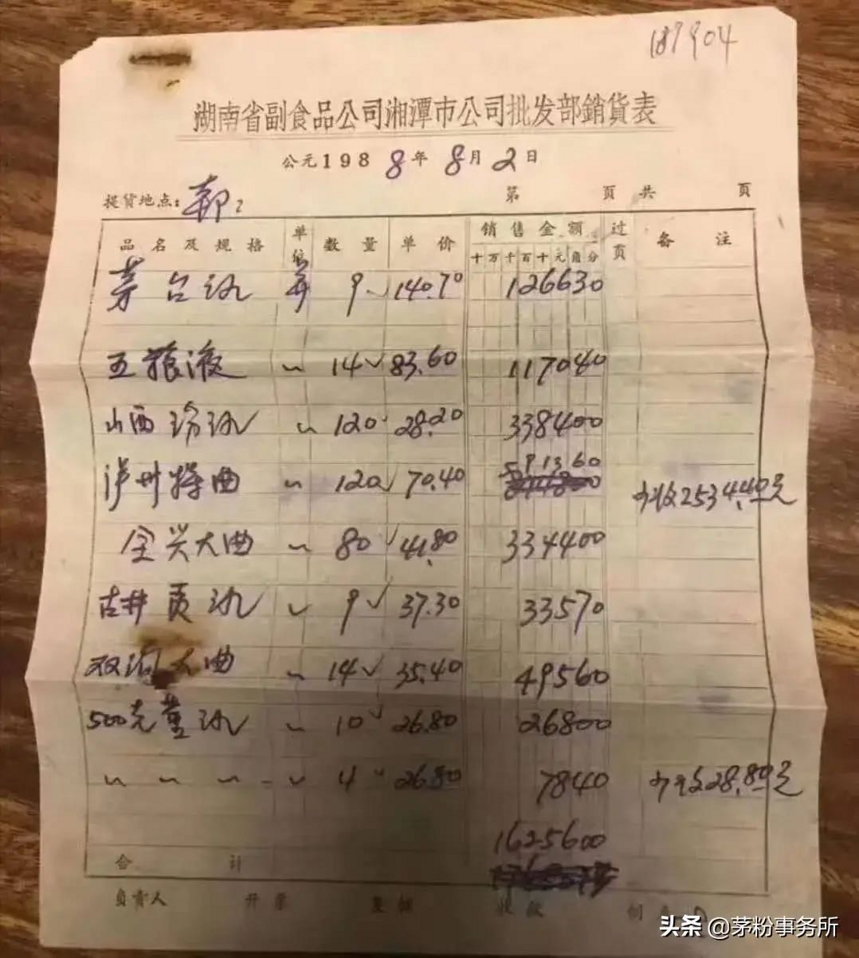 187904
湖南省副食品公司湘潭市公司批发部銷貨表
公元1988年8月2日
提货地点: 第 页共 页
品名及规格 单位 数量 单价 销售金额 过页 备注
十万千百十元角分
茅台酒 9 140.70 126630
五粮液 〃 14 83.60 117040
山西汾酒 〃 120 28.20 338400
591360
泸州特曲 〃 120 70.40 少收2534.40元
全兴大曲 〃 80 41.80 334400
古井贡酒 〃 9 37.30 33570
双沟大曲 〃 14 35.40 49560
500克董酒 〃 10 26.80 26800
〃 〃 〃 〃 〃 4 〃 26.80 7840 少收28.80元
1625600
合计
负责人 开票 复核 收款
头条 @茅粉事务所